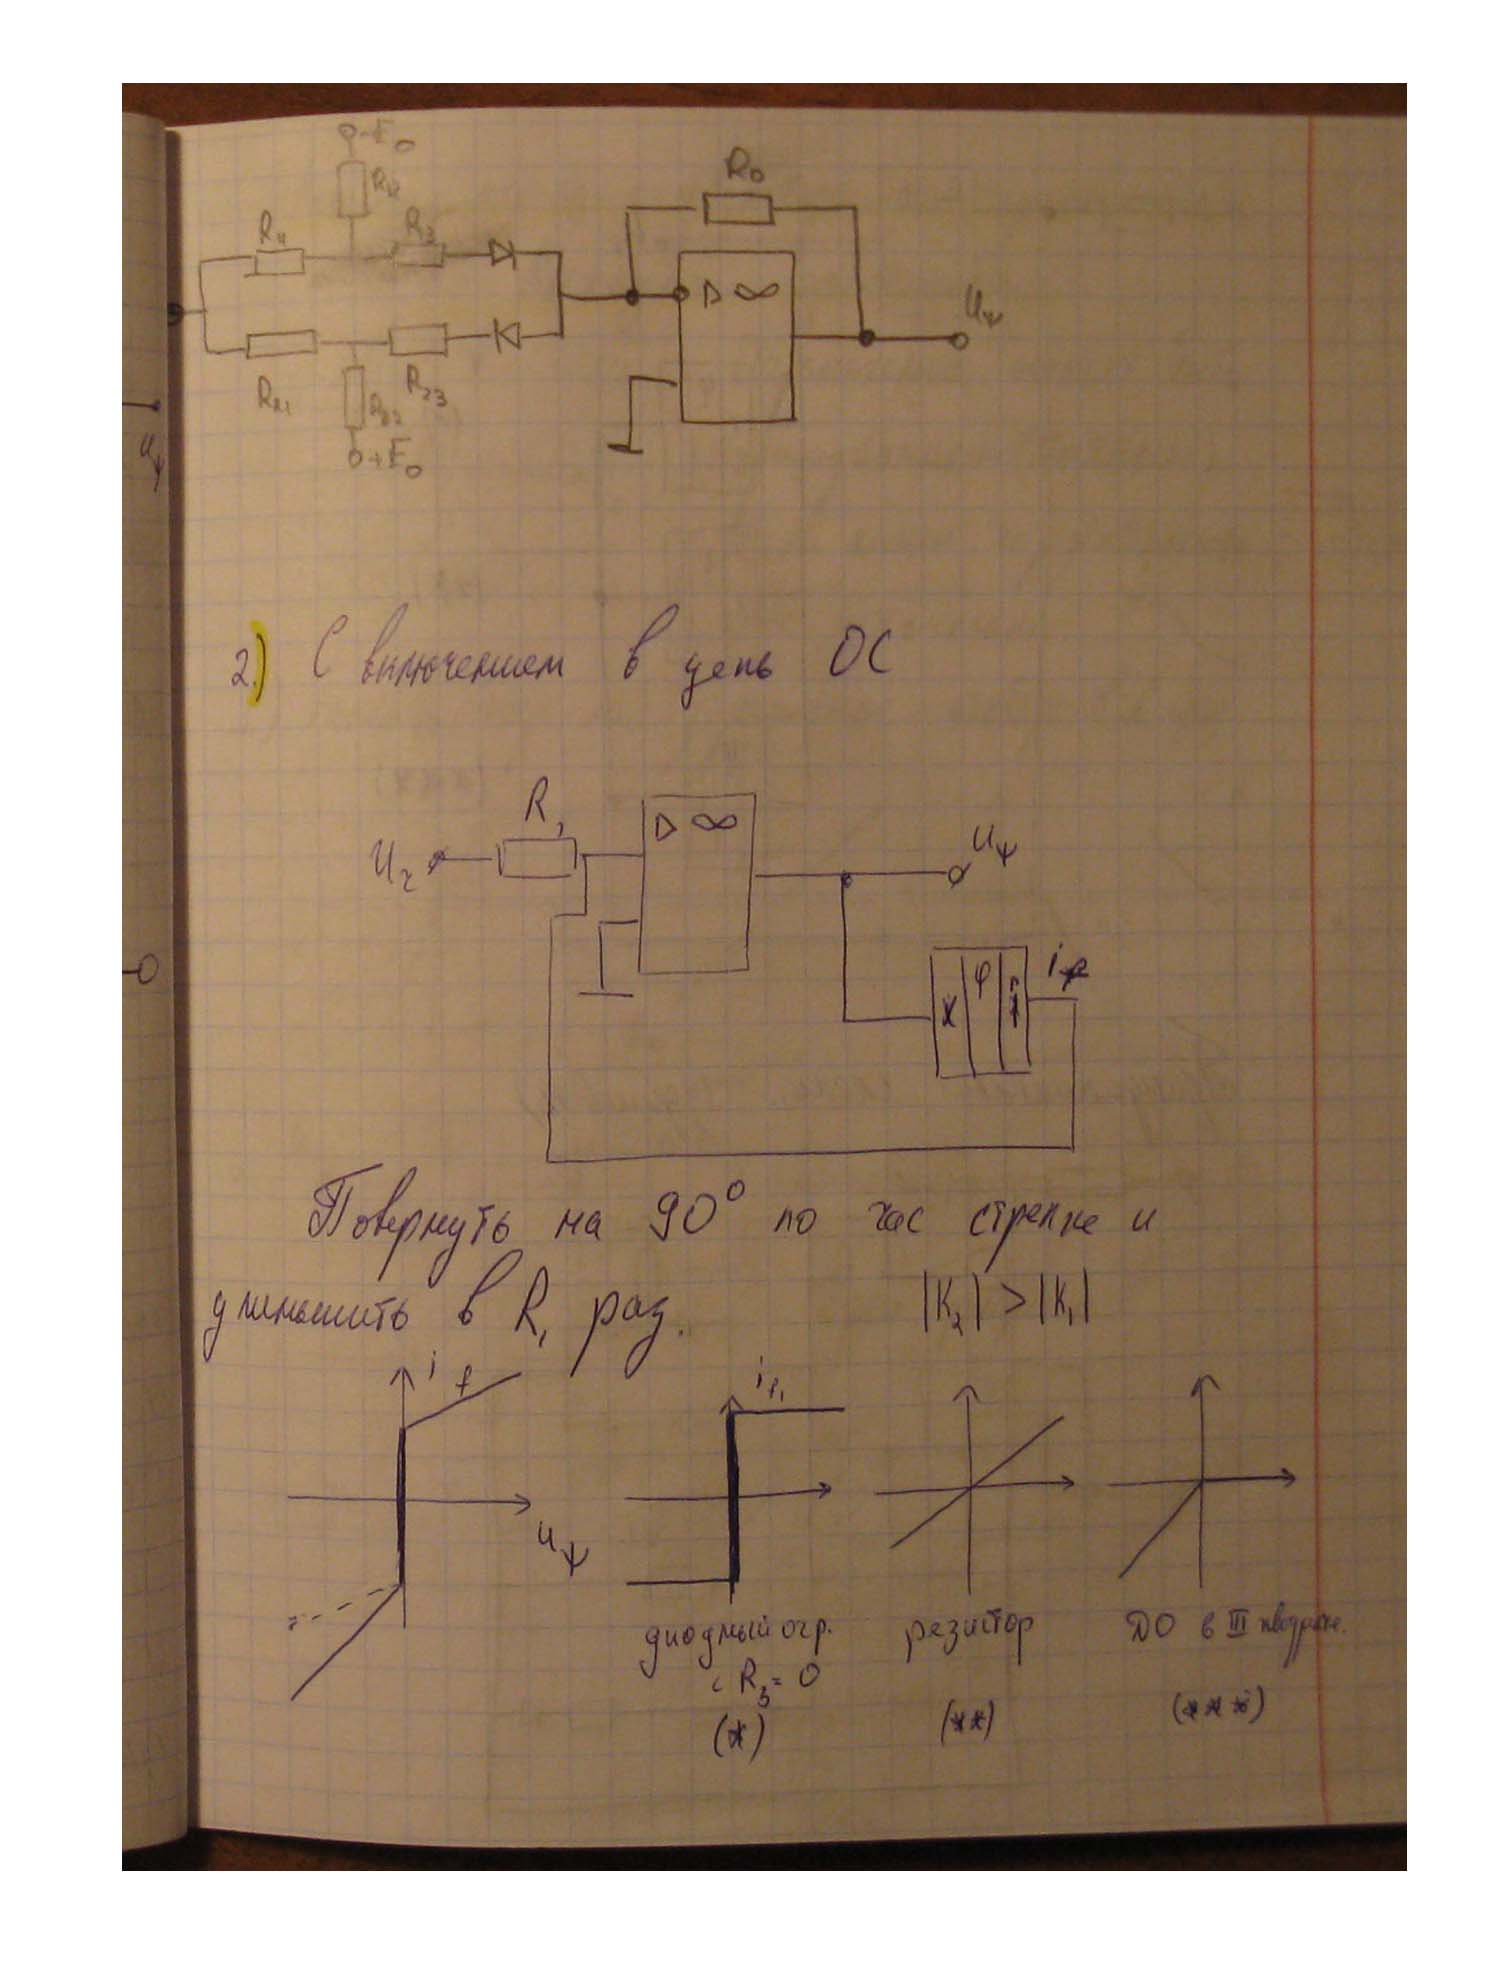 -E₀
R₁₂
R₀
R₁₁
R₁₃
▷ ∞
Uψ
R₂₁
R₂₃
R₂₂
+E₀
Uψ
2.) С включением в цепь ОС
R₁
▷ ∞
U₂
Uψ
X φ
Повернуть на 90° по час стрелке и
уменьшить в R₁ раз.
|K₂| > |K₁|
i f
i f₁
Uψ
диодный огр. резистор ДО в III квадранте.
с R₃ = 0
(*) (**) (***)